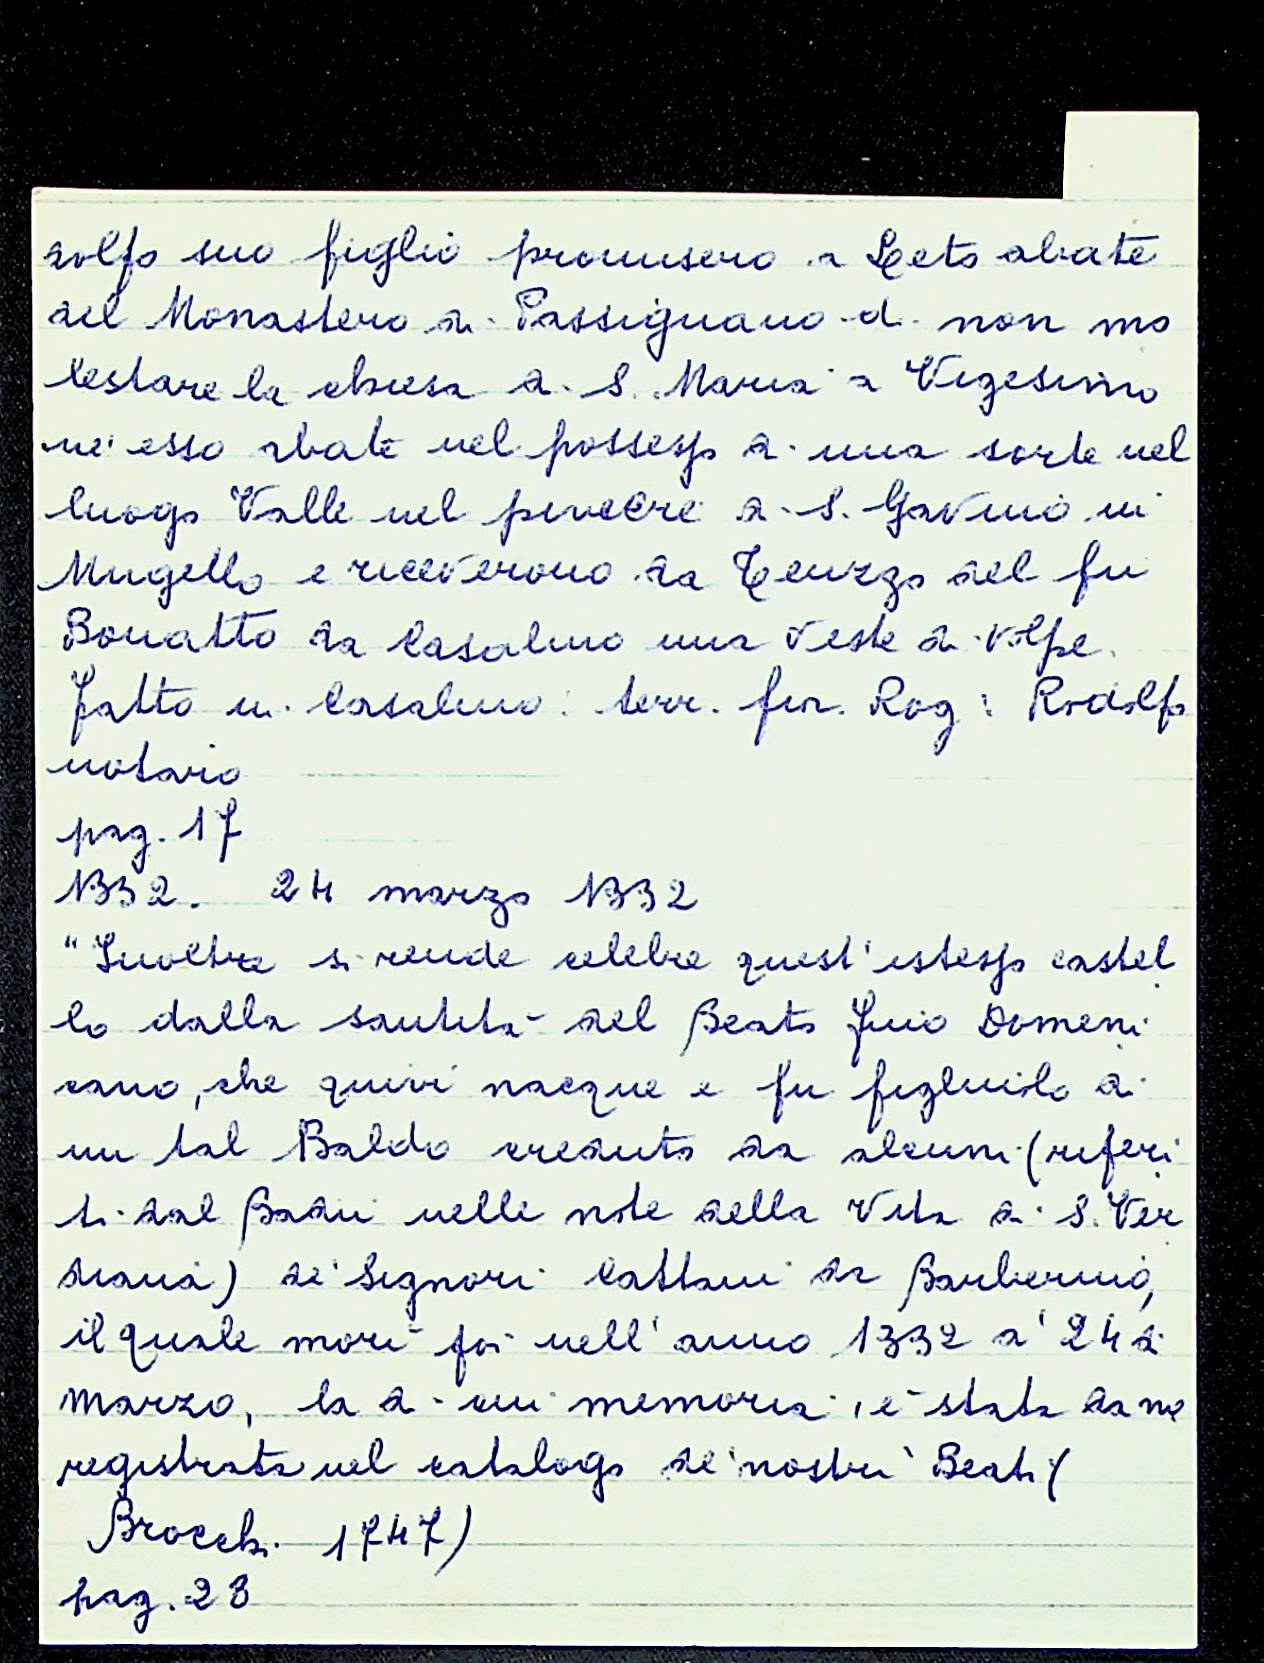 dolfo suo figlio promisero a Leto abate
del Monastero di Passignano di non mo
lestare la chiesa di S. Maria a Vigesimo
nè esso abate nel possesso di una sorte nel
luogo Valle nel piviere di S. Gavino in
Mugello e riceverono da Teuzzo del fu
Bonatto da Casalino una veste di volpe.
Fatto in Casalino: terr. fior. Rog: Rodolfo
notario
pag. 17
1332. 24 marzo 1332
"Inoltre si rende celebre quest'istesso castel
lo dalla santità del Beato Domeni
cano, che quivi nacque e fu figliuolo di
un tal Baldo creduto da alcuni (riferi
ti dal nelle note della Vita di S. Ver
diana) de' Signori Cattani da Barberino,
il quale morì poi nell'anno 1332 a' 24 di
marzo, la di cui memoria, è stata da me
registrata nel catalogo de' nostri Beati (
Brocchi 1747)
pag. 23